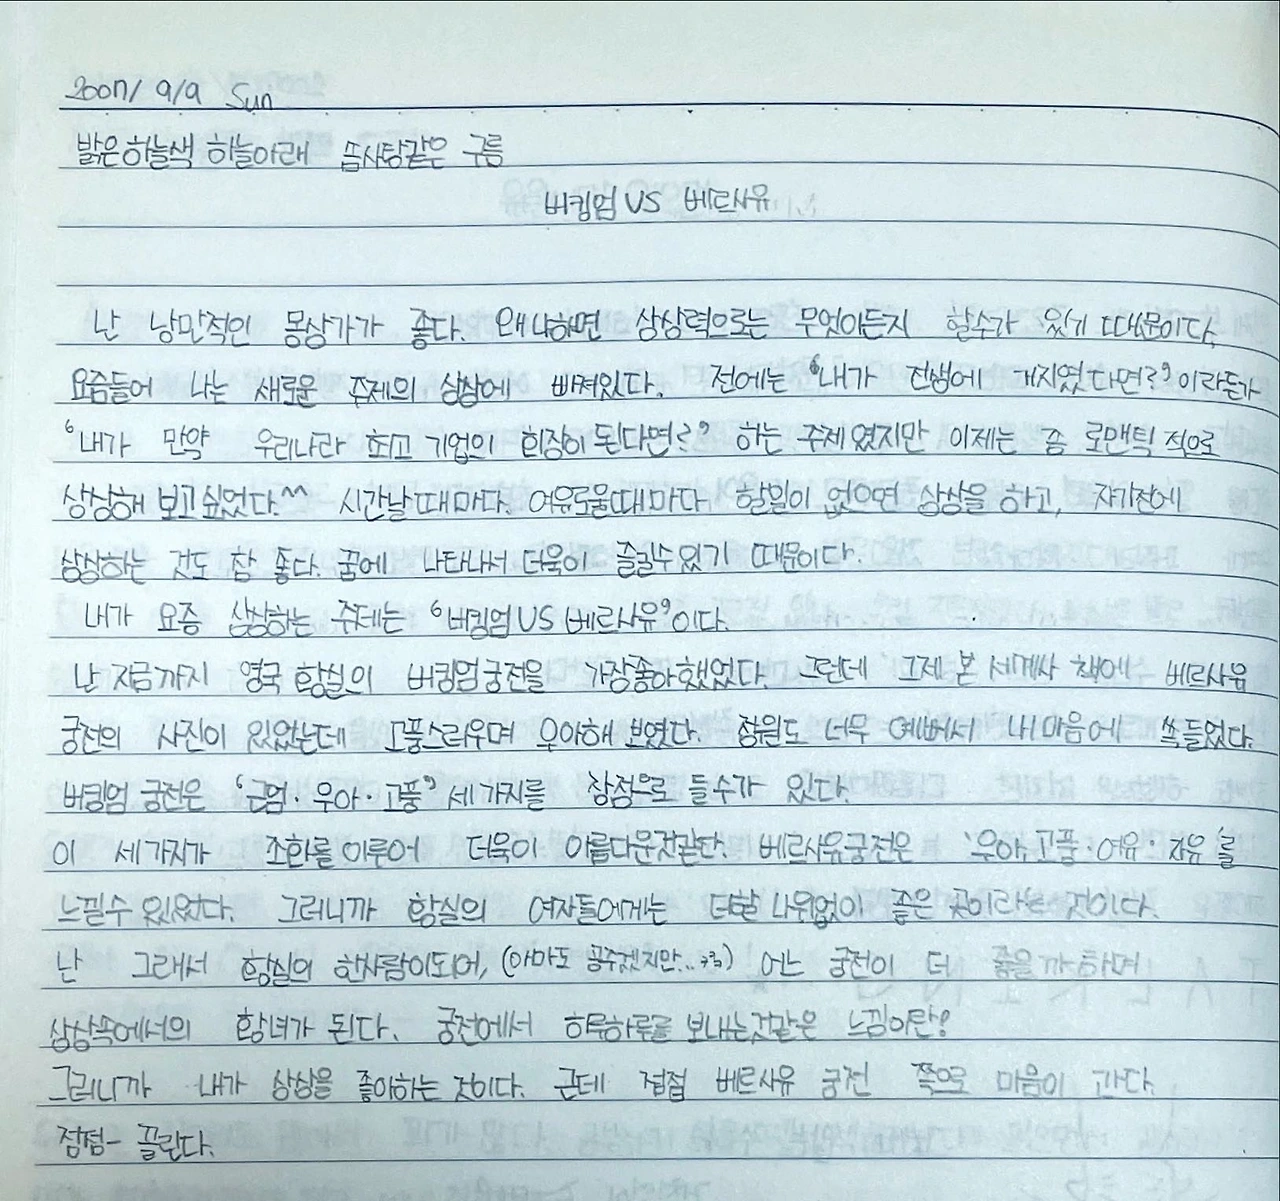 2007/ 9/9 Sun
밝은하늘색 하늘아래 솜사탕같은 구름
버킹엄 VS 베르사유
난 낭만적인 몽상가가 좋다. 왜냐하면 상상력으로는 무엇이든지 할수가 있기 때문이다.
요즘들어 나는 새로운 주제의 상상에 빠져있다. 전에는 '내가 전생에 거지였다면?'이라든가
'내가 만약 우리나라 최고 기업의 회장이 된다면?' 하는 주제였지만 이제는 좀 로맨틱 적으로
상상해 보고싶었다.^^ 시간날때마다. 여유로울때마다. 할일이 없으면 상상을 하고, 자기전에
상상하는 것도 참 좋다. 꿈에 나타나서 더욱이 즐길수있기 때문이다.
내가 요즘 상상하는 주제는 '버킹엄 VS 베르사유'이다.
난 지금까지 영국 황실의 버킹엄궁전을 가장좋아했었다. 그런데 그제 본 세계사 책에 베르사유
궁전의 사진이 있었는데 고풍스러우며 우아해 보였다. 정원도 너무 예뻐서 내 마음에 쏙들었다.
버킹엄 궁전은 '근엄·우아·고풍' 세가지를 장점으로 들수가 있다.
이 세가지가 조화를 이루어 더욱이 아름다운것같다. 베르사유궁전은 '우아, 고풍·여유·자유'를
느낄수 있었다. 그러니까 황실의 여자들에게는 더할 나위없이 좋은 곳이라는 것이다.
난 그래서 황실의 한사람이되어, (아마도 공주겠지만..ㅋㅋ) 어느 궁전이 더 좋을까하며
상상속에서의 황녀가 된다. 궁전에서 하루하루를 보내는것같은 느낌이란?
그러니까 내가 상상을 좋아하는 것이다. 근데 점점 베르사유 궁전 쪽으로 마음이 간다.
점점- 끌린다.